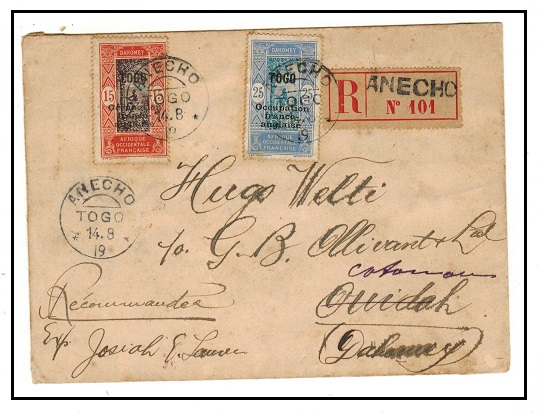 DAHOMEY
TOGO
15 15
Occupation
franco-
anglaise
AFRIQUE
OCCIDENTALE
FRANÇAISE
DAHOMEY
TOGO
25 25
Occupation
franco-
anglaise
AFRIQUE
OCCIDENTALE
FRANÇAISE
ANECHO
TOGO
14.8
19
ANECHO
TOGO
19
R ANECHO
Nº 101
ANECHO
TOGO
14.8
19
Hugo Welti
c/o G. B. Ollivant & Ltd
cotonou
Ouidah
Dahomey
Recommandée
Exp. Josiah E.